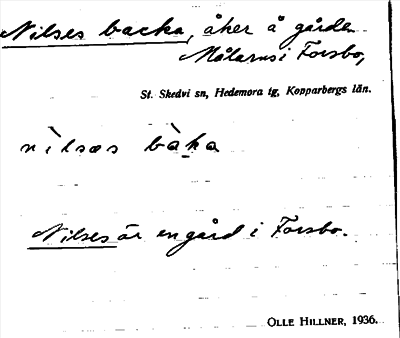 Nilses backa, åker å gården
Målarns i Forsbo,
St. Skedvi sn, Hedemora tg, Kopparbergs län.
nìlsəs bàka
Nilses är en gård i Forsbo.
OLLE HILLNER, 1936.